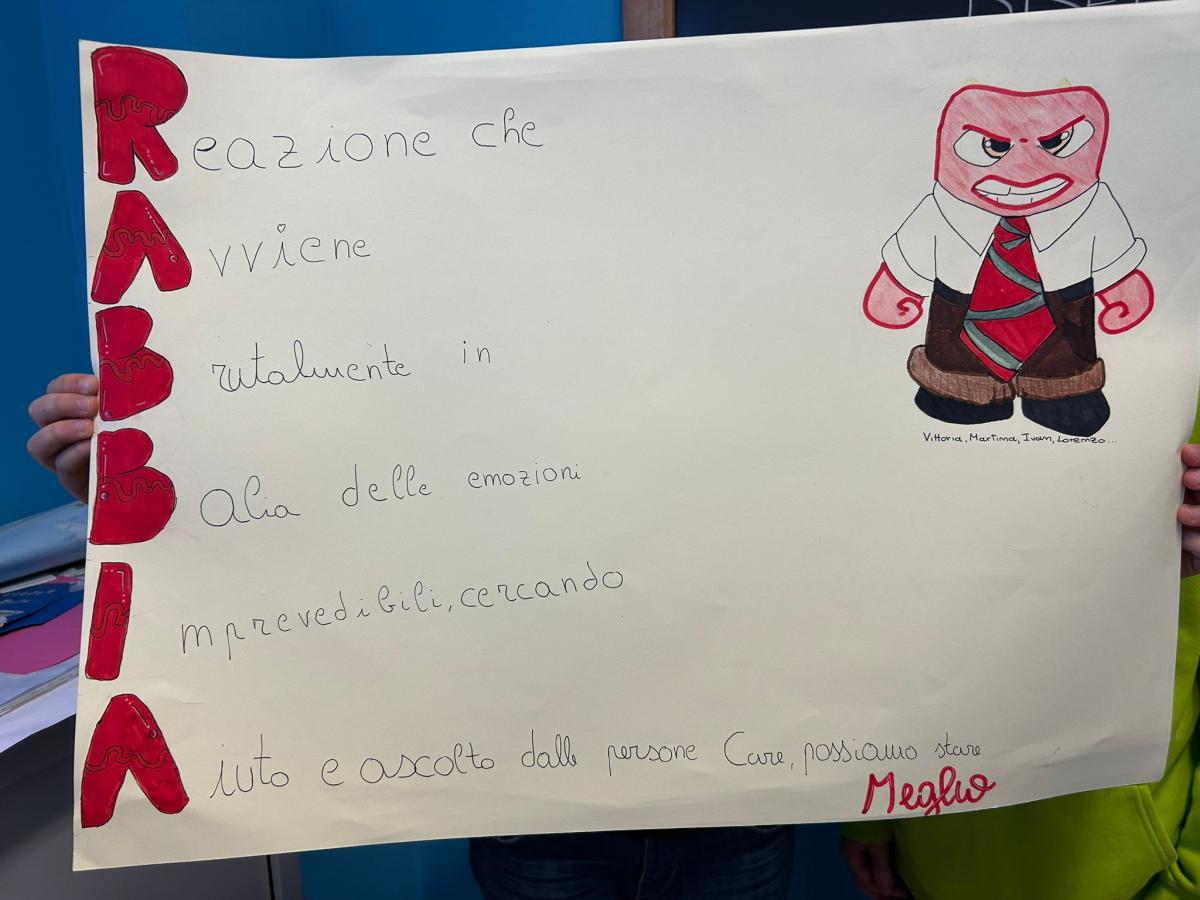 Reazione che
Avviene
Brutalmente in
Balia delle emozioni
Imprevedibili, cercando
Aiuto e ascolto dalle persone Care, possiamo stare
Meglio
Vittoria, Martina, Ivan, Lorenzo...